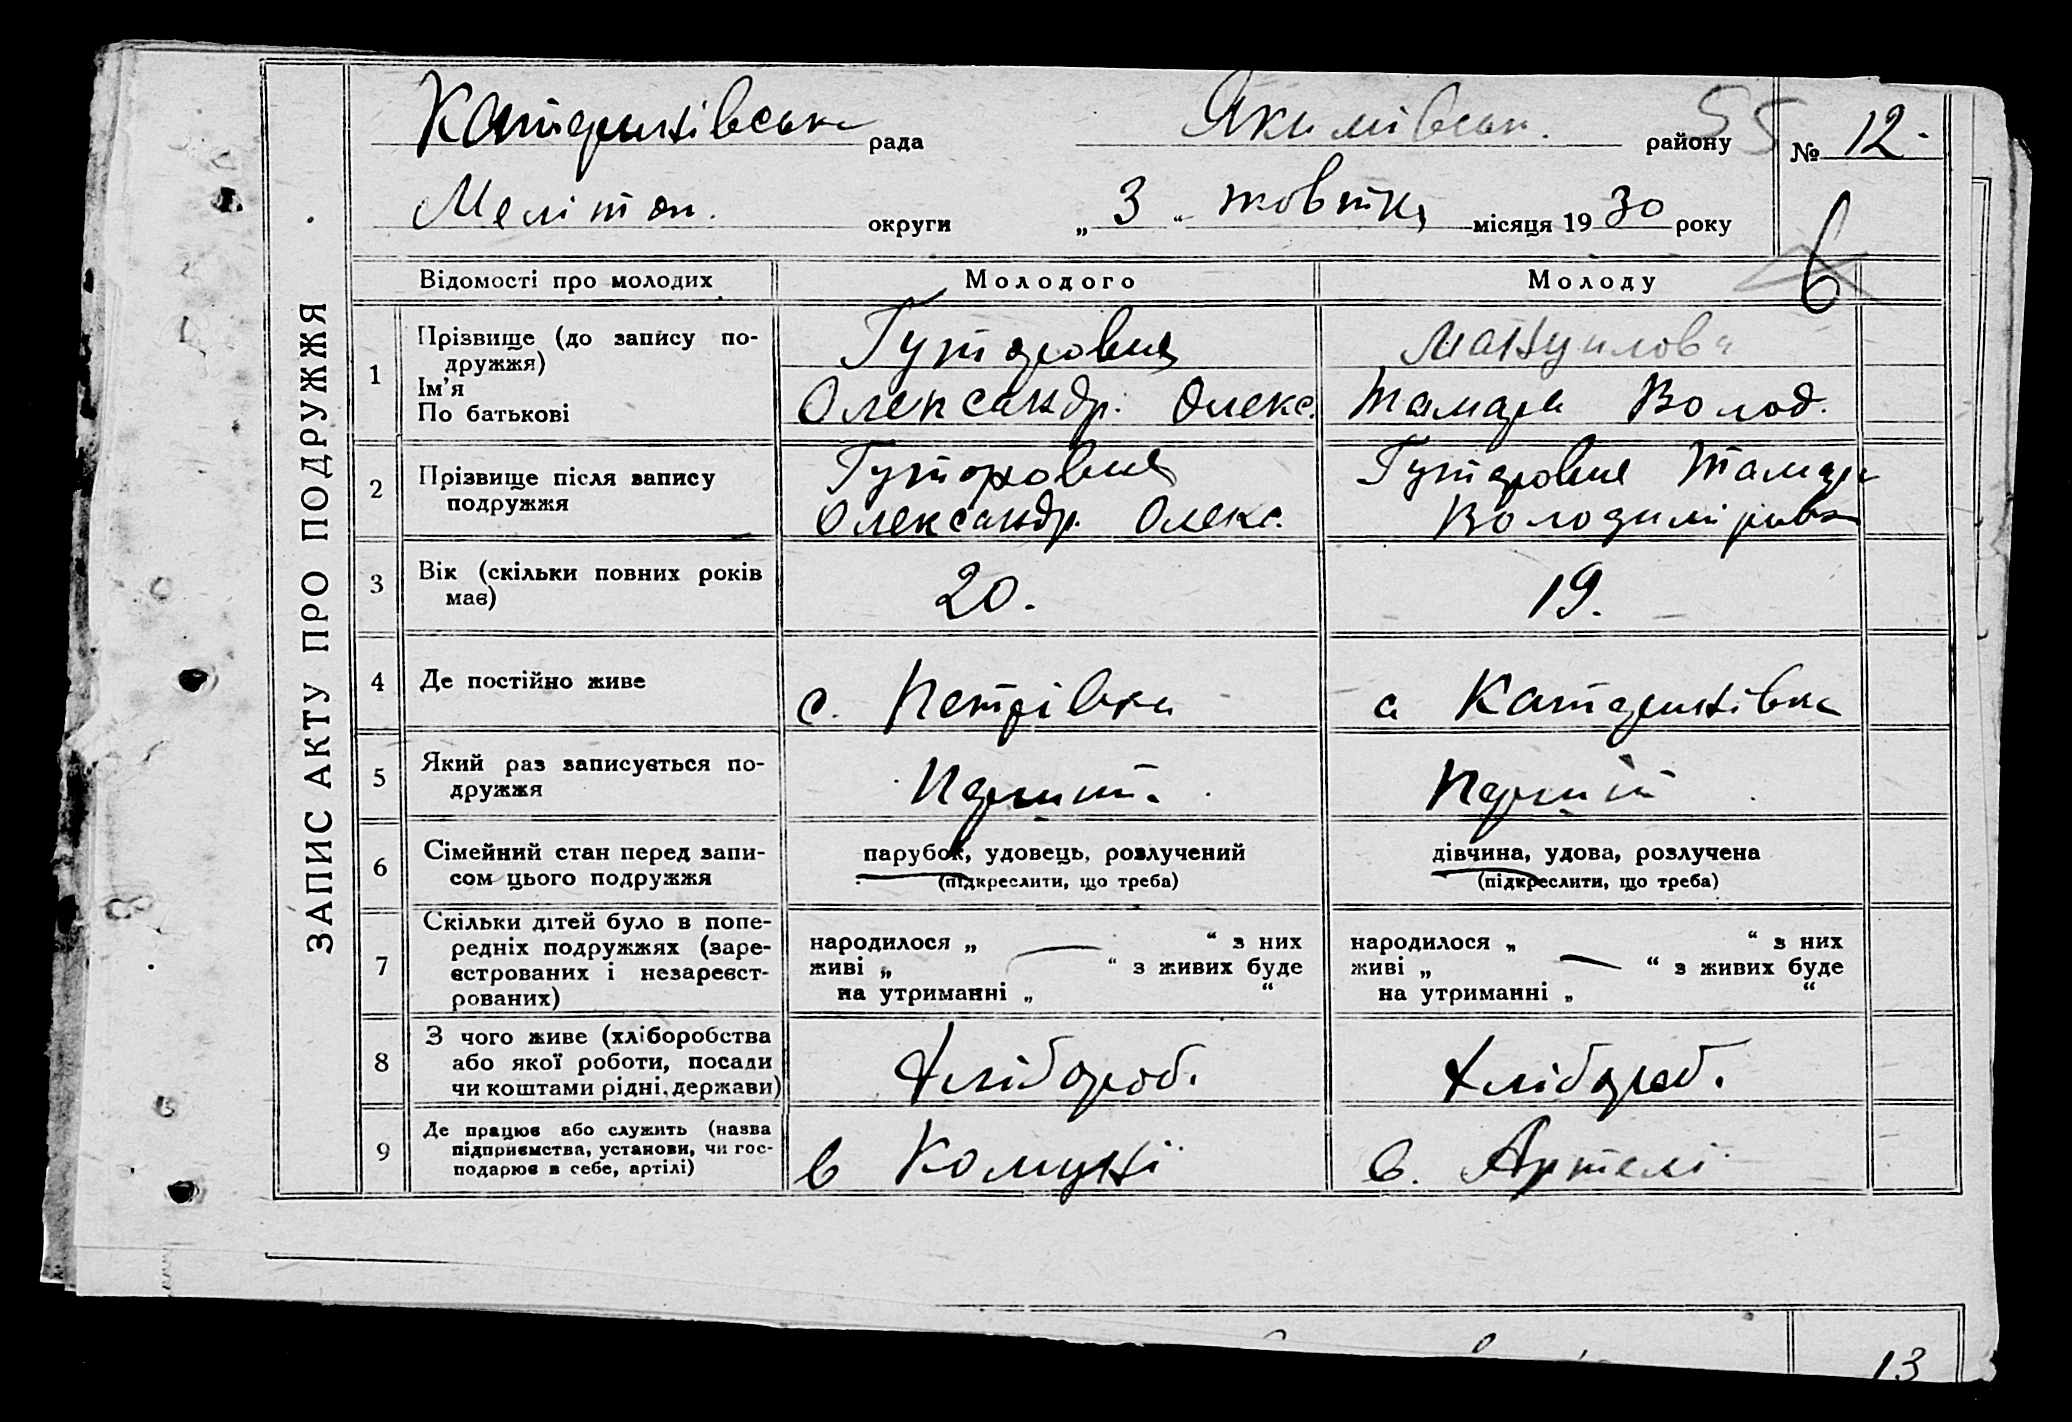 Катеринівська рада Якимівськ. району 55 № 12.
Мелітоп. округи „ 3 “ жовтня місяця 19 30 року
6
ЗАПИС АКТУ ПРО ПОДРУЖЖЯ
Відомості про молодих Молодого Молоду
1 Прізвище (до запису по-
дружжя)
Ім’я
По батькові
Мануилова
Олександр. Олекс. Тамара Волод.
2 Прізвище після запису
подружжя
Олександр. Олекс. Тамара
3 Вік (скільки повних років
має)
20. 19.
4 Де постійно живе с. Петрівка с Катеринівка
5 Який раз записується по-
дружжя
6 Сімейний стан перед запи-
сом цього подружжя
парубок, удовець, розлучений дівчина, удова, розлучена
(підкреслити, що треба) (підкреслити, що треба)
7 Скільки дітей було в попе-
редніх подружжях (заре-
єстрованих і незареєст-
рованих)
народилося „ — “ з них
живі „ “ з живих буде
на утриманні „ “
народилося „ “ з них
живі „ — “ з живих буде
на утриманні „ “
8 З чого живе (хліборобства
або якої роботи, посади
чи коштами рідні, держави)
Хлібороб. Хлібороб.
9 Де працює або служить (назва
підприємства, установи, чи гос-
подарює в себе, артілі)
в Комуні в. Артелі
13